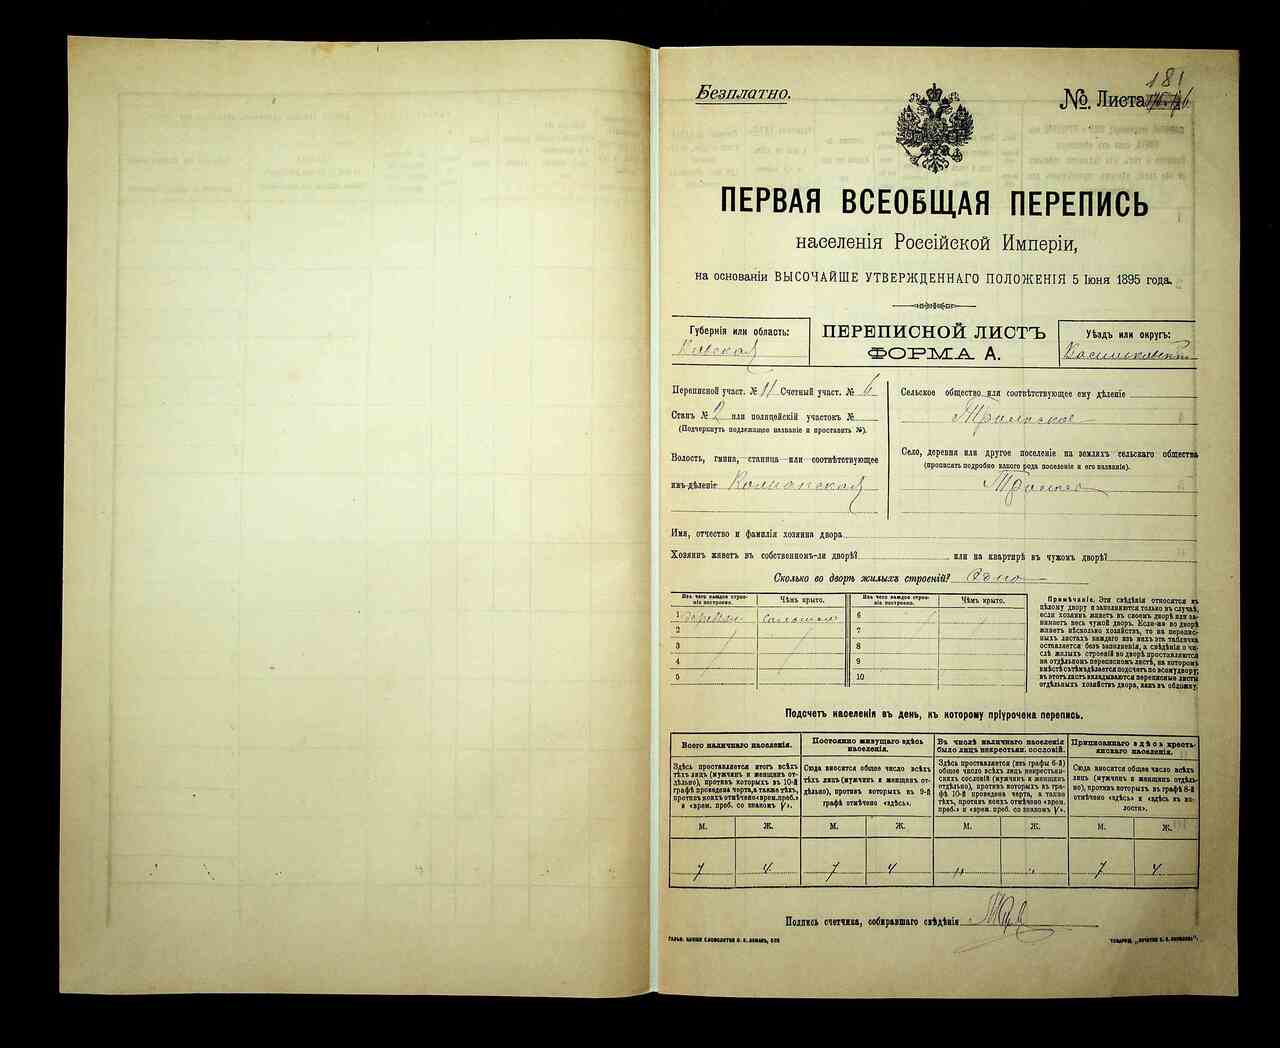 Безплатно.
№. Листа 181
ПЕРВАЯ ВСЕОБЩАЯ ПЕРЕПИСЬ
населенія Россійской Имперіи,
на основаніи ВЫСОЧАЙШЕ УТВЕРЖДЕННАГО ПОЛОЖЕНІЯ 5 Іюня 1895 года.
Губернія или область:
Кіевская
ПЕРЕПИСНОЙ ЛИСТЪ
ФОРМА А.
Уѣздъ или округъ:
Васильковскій
Переписной участ. № 11 Счетный участ. № 6
Станъ № 2 или полицейскій участокъ №
(Подчеркнуть подлежащее названіе и проставить №).
Волость, гмина, станица или соотвѣтствующее
имъ дѣленіе
Сельское общество или соотвѣтствующее ему дѣленіе
Трилѣсское
Село, деревня или другое поселеніе на земляхъ сельскаго общества
(прописать подробно какого рода поселеніе и его названіе).
Трилѣсы
Имя, отчество и фамилія хозяина двора
Хозяинъ живетъ въ собственномъ-ли дворѣ? или на квартирѣ въ чужомъ дворѣ?
Сколько во дворѣ жилыхъ строеній? Одно
Изъ чего каждое строе-
ніе построено.
Чѣмъ крыто.
Изъ чего каждое строе-
ніе построено.
Чѣмъ крыто.
1 деревян соломою 6
2 7
3 8
4 9
5 10
Примѣчаніе. Эти свѣдѣнія относятся къ
цѣлому двору и заполняются только въ случаѣ,
если хозяинъ живетъ въ своемъ дворѣ или за-
нимаетъ весь чужой дворъ. Если-же во дворѣ
живетъ нѣсколько хозяйствъ, то на перепис-
ныхъ листахъ каждаго изъ нихъ эта табличка
оставляется безъ заполненія, а свѣдѣнія о чи-
слѣ жилыхъ строеній во дворѣ проставляются
на отдѣльномъ переписномъ листѣ, на которомъ
вмѣстѣ съ тѣмъ дѣлается подсчетъ по всему двору;
въ этотъ листъ вкладываются переписные листы
отдѣльныхъ хозяйствъ двора, какъ въ обложку.
Подсчетъ населенія въ день, къ которому пріурочена перепись.
Всего наличнаго населенія.
Постоянно живущаго здѣсь
населенія.
Въ числѣ наличнаго населенія
было лицъ некрестьянск. сословій.
Приписаннаго здѣсь кресть-
янскаго населенія.
Здѣсь проставляется итогъ всѣхъ
тѣхъ лицъ (мужчинъ и женщинъ от-
дѣльно), противъ которыхъ въ 10-й
графѣ проведена черта, а также тѣхъ,
противъ коихъ отмѣчено «врем. преб.»
и «врем. преб. со знакомъ V».
Сюда вносится общее число всѣхъ
тѣхъ лицъ (мужчинъ и женщинъ от-
дѣльно), противъ которыхъ въ 9-й
графѣ отмѣчено «здѣсь».
Здѣсь проставляется (изъ графы 6-й)
общее число всѣхъ лицъ некрестьян-
скихъ сословій (мужчинъ и женщинъ
отдѣльно), противъ которыхъ въ гра-
фѣ 10-й проведена черта, а также
тѣхъ, противъ коихъ отмѣчено «врем.
преб.» и «врем. преб. со знакомъ V».
Сюда вносится общее число всѣхъ
лицъ (мужчинъ и женщинъ отдѣль-
но), противъ которыхъ въ графѣ 8-й
отмѣчено «здѣсь» и «здѣсь въ во-
лости».
М. Ж. М. Ж. М. Ж. М. Ж.
7 4 7 4 „ „ 7 4
Подпись счетчика, собиравшаго свѣдѣнія